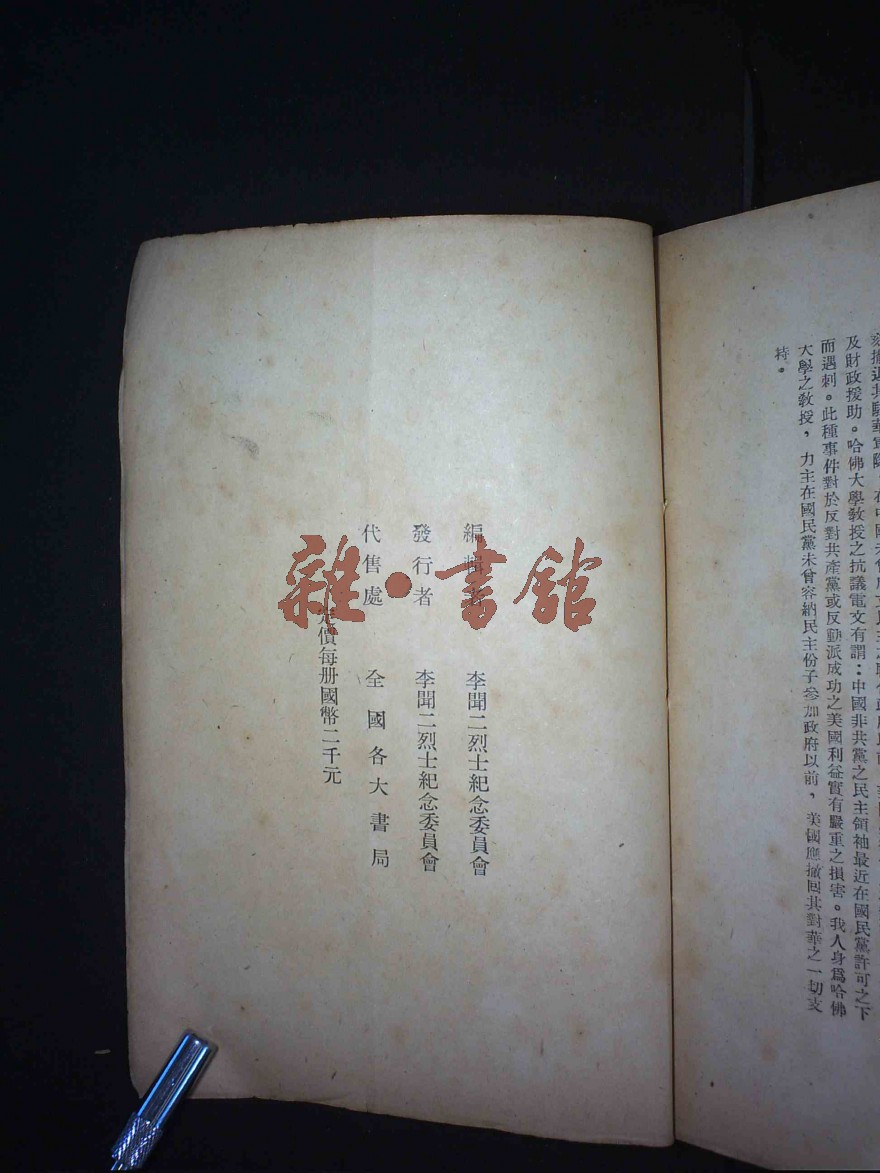 及財政援助。哈佛大學教授之抗議電文有謂：中國非共黨之民主領袖最近在國民黨許可之下
而遇刺。此種事件對於反對共產黨或反動派成功之美國利益實有嚴重之損害。我人身爲哈佛
大學之教授，力主在國民黨未曾容納民主份子參加政府以前，美國應撤回其對華之一切支
持。
編輯者 李聞二烈士紀念委員會
發行者 李聞二烈士紀念委員會
代售處 全國各大書局
定價每册國幣二千元
雜·書館